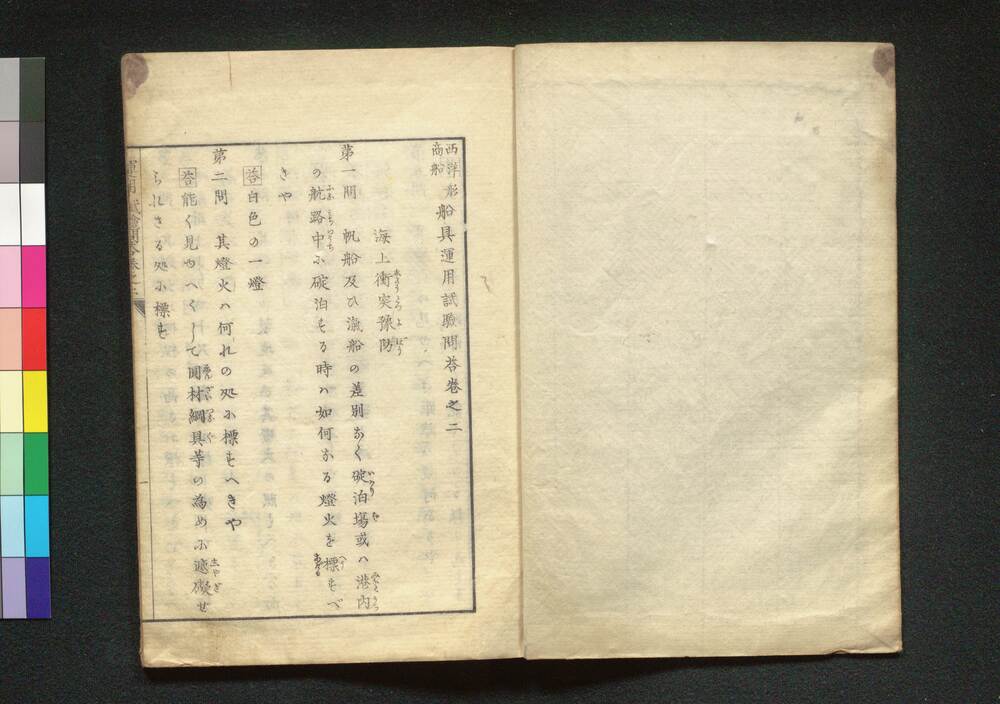 西洋形商船 船具運用試驗問荅卷之二
海上衝突豫防
第一問 帆船及ひ漁船の差別なく碇泊場或ハ港内
の航路中に碇泊する時ハ如何なる燈火を標すべ
きや
荅 白色の一燈
第二問 其燈火ハ何れの処に標すへきや
荅 能く見ゆへくして圓材綱具等の為めに遮礙せ
られさる処に標す
運用試驗問荅卷之二
一